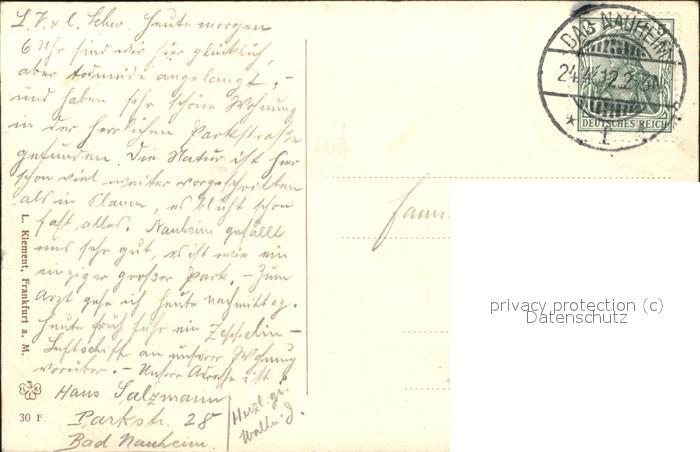 L. V. u. l. Schw. Heute morgen
6 Uhr sind wir hier glücklich,
aber todmüde angelangt, -
und haben sehr schöne Wohnung
in der herrlichen Parkstraße
gefunden. Die Natur ist hier
schon viel weiter vorgeschritten
als in Plauen, es blüht schon
fast alles. Nauheim gefällt
uns sehr gut, es ist wie ein
einziger großer Park. - Zum
Arzt gehe ich heute nachmittag.
Heute früh fuhr ein Zeppelin-
Luftschiff an unserer Wohnung
vorüber. - Unsere Adresse ist:
Hans Salzmann
Parkstr. 28
Bad Nauheim.
Herzl. Gr.
L. Klement, Frankfurt a. M.
30 F.
BAD NAUHEIM
24.4.12.
* 1 *
DEUTSCHES REICH
privacy protection (c)
Datenschutz